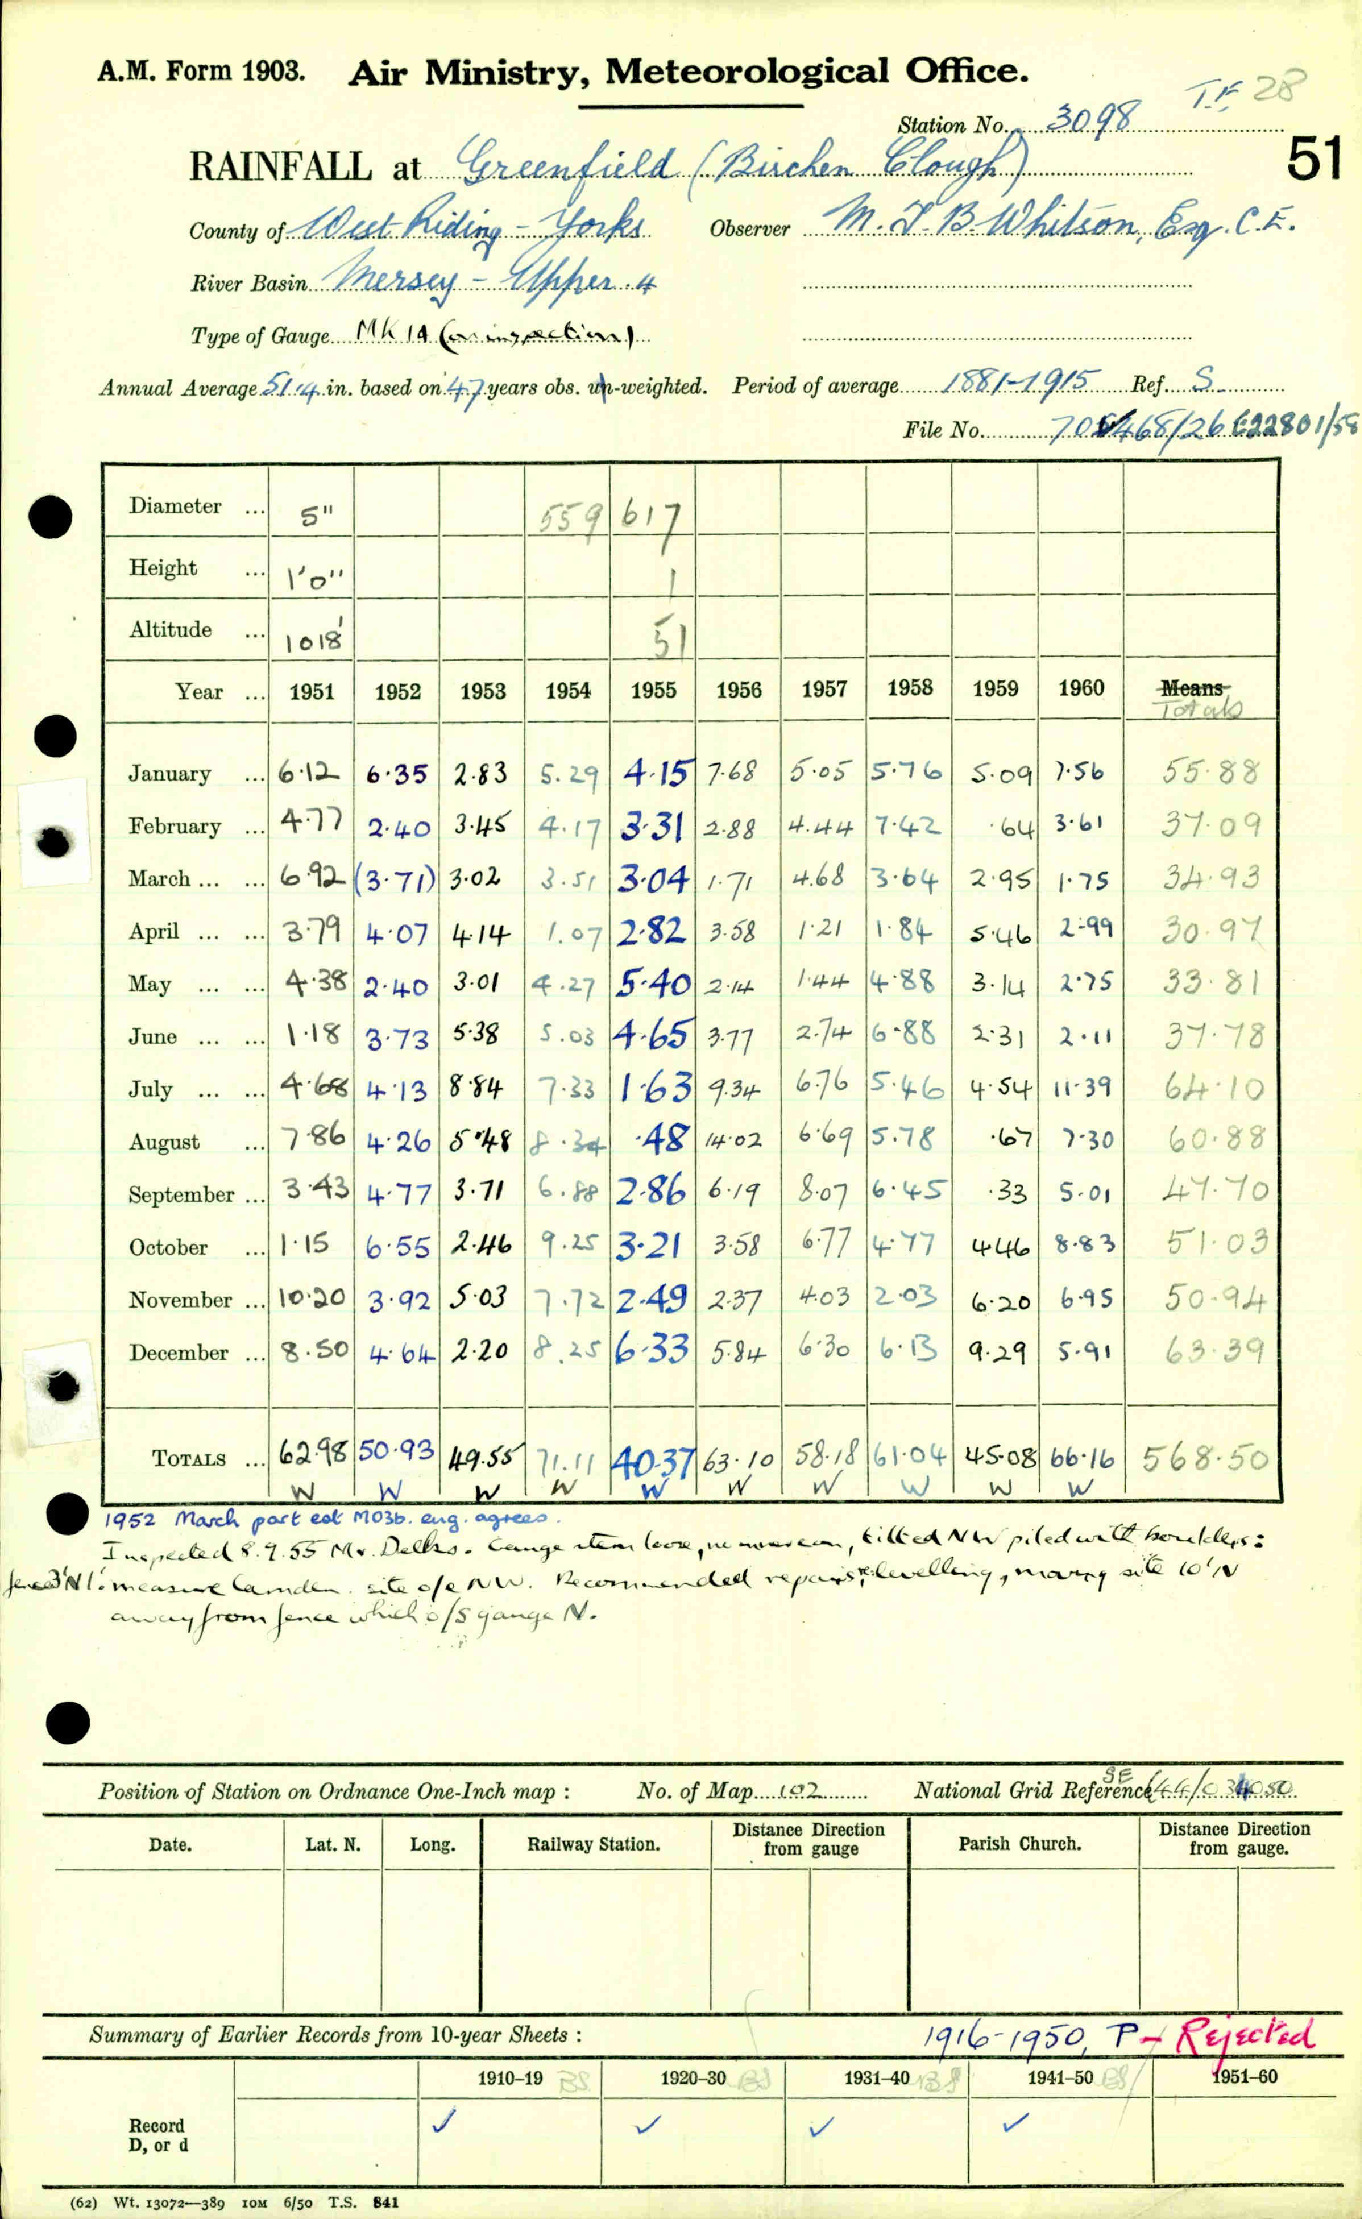 A.M. Form 1903. Air Ministry, Meteorological Office.
T.F. 28
Station No. 3098
51
RAINFALL at Greenfield (Birchen Clough)
County of West Riding - Yorks Observer M. T. B. Whitson, Esq. C.E.
River Basin Mersey - Upper 4
Type of Gauge MK 1A (on inspection)
Annual Average 51.4 in. based on 47 years obs. un-weighted. Period of average 1881-1915 Ref. S.
File No. 705468/26 E22801/58
Diameter ... 5" 559 617
Height ... 1'0" 1
Altitude ... 1018' 51
Year ... 1951 1952 1953 1954 1955 1956 1957 1958 1959 1960 Means Totals
January ... 6.12 6.35 2.83 5.29 4.15 7.68 5.05 5.76 5.09 7.56 55.88
February ... 4.77 2.40 3.45 4.17 3.31 2.88 4.44 7.42 .64 3.61 37.09
March ... ... 6.92 (3.71) 3.02 3.51 3.04 1.71 4.68 3.64 2.95 1.75 34.93
April ... ... 3.79 4.07 4.14 1.07 2.82 3.58 1.21 1.84 5.46 2.99 30.97
May ... ... 4.38 2.40 3.01 4.27 5.40 2.14 1.44 4.88 3.14 2.75 33.81
June ... ... 1.18 3.73 5.38 5.03 4.65 3.77 2.74 6.88 2.31 2.11 37.78
July ... ... 4.68 4.13 8.84 7.33 1.63 9.34 6.76 5.46 4.54 11.39 64.10
August ... 7.86 4.26 5.48 8.34 .48 14.02 6.69 5.78 .67 7.30 60.88
September ... 3.43 4.77 3.71 6.88 2.86 6.19 8.07 6.45 .33 5.01 47.70
October ... 1.15 6.55 2.46 9.25 3.21 3.58 6.77 4.77 4.46 8.83 51.03
November ... 10.20 3.92 5.03 7.72 2.49 2.37 4.03 2.03 6.20 6.95 50.94
December ... 8.50 4.64 2.20 8.25 6.33 5.84 6.30 6.13 9.29 5.91 63.39
TOTALS ... 62.98 50.93 49.55 71.11 40.37 63.10 58.18 61.04 45.08 66.16 568.50
W W W W W W W W W W
1952 March part est MO3b. eng. agrees.
Inspected 8.9.55 Mr. Delks. Gauge stem loose, no movement, tilted NW piled with boulders:
fence 3'N 1': measure Camden. site o/e NW. Recommended repairs, relevelling, moving site 10' N
away from fence which o/s gauge N.
Position of Station on Ordnance One-Inch map : No. of Map 102 National Grid Reference SE (44/034050
Date. Lat. N. Long. Railway Station. Distance Direction from gauge Parish Church. Distance Direction from gauge.
Summary of Earlier Records from 10-year Sheets : 1916-1950, P - Rejected
1910–19 BS 1920–30 BS 1931–40 BS 1941–50 BS 1951–60
Record
D, or d ✓ ✓ ✓ ✓
(62) Wt. 13072—389 10M 6/50 T.S. 841